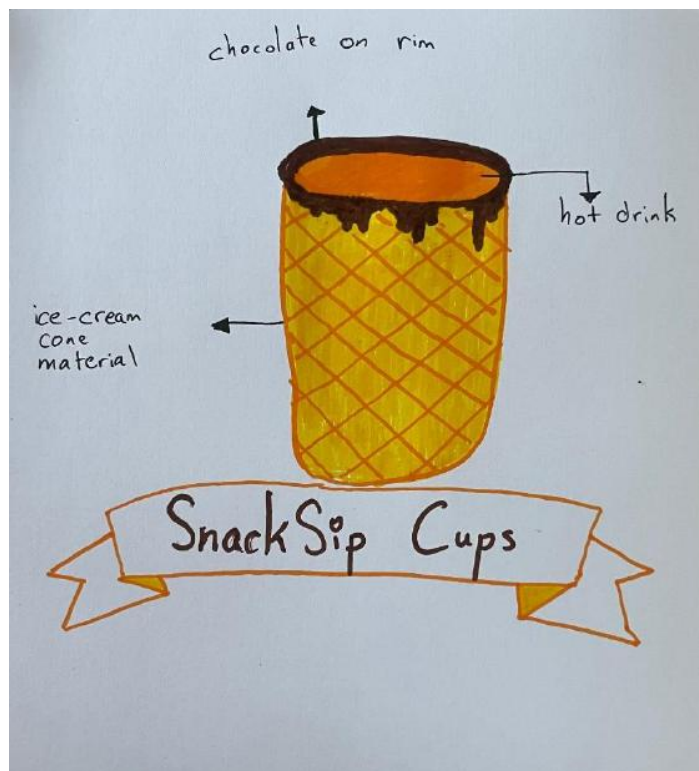 chocolate on rim
hot drink
ice-cream
cone
material
SnackSip Cups